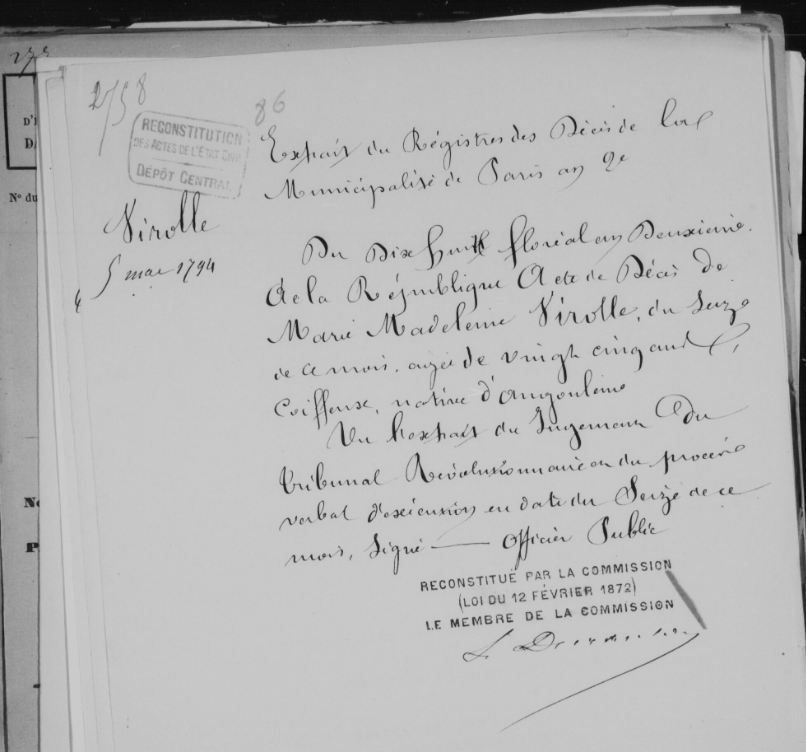 2758
86
RECONSTITUTION
DES ACTES DE L'ÉTAT CIVIL
DÉPÔT CENTRAL
Virolle
5 mai 1794
Extrait du Régistres des Décès de la
Municipalité de Paris an 2e
Du Dix huit floréal an Deuxième
de la République Acte de Décès de
Marie Madeleine Virolle, du Seize
de ce mois, agée de vingt cinq ans,
Coiffeuse, native d'angoulême
Vu l'extrait du Jugement du
tribunal Révolutionnaire et du procès
verbal d'exécution en date du Seize de ce
mois, Signé — Officier Public
RECONSTITUÉ PAR LA COMMISSION
(LOI DU 12 FÉVRIER 1872)
LE MEMBRE DE LA COMMISSION
N° du